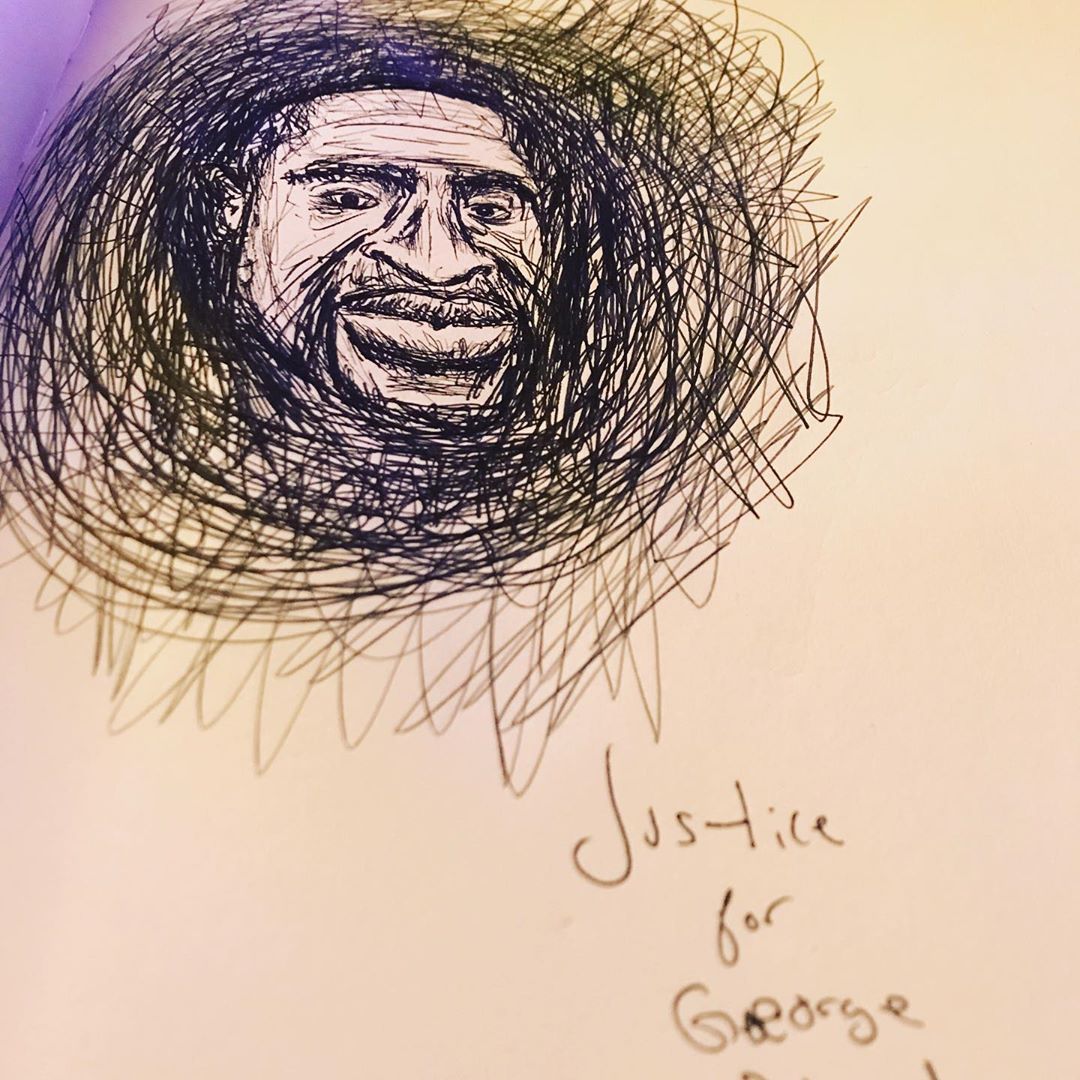 Justice
for
George